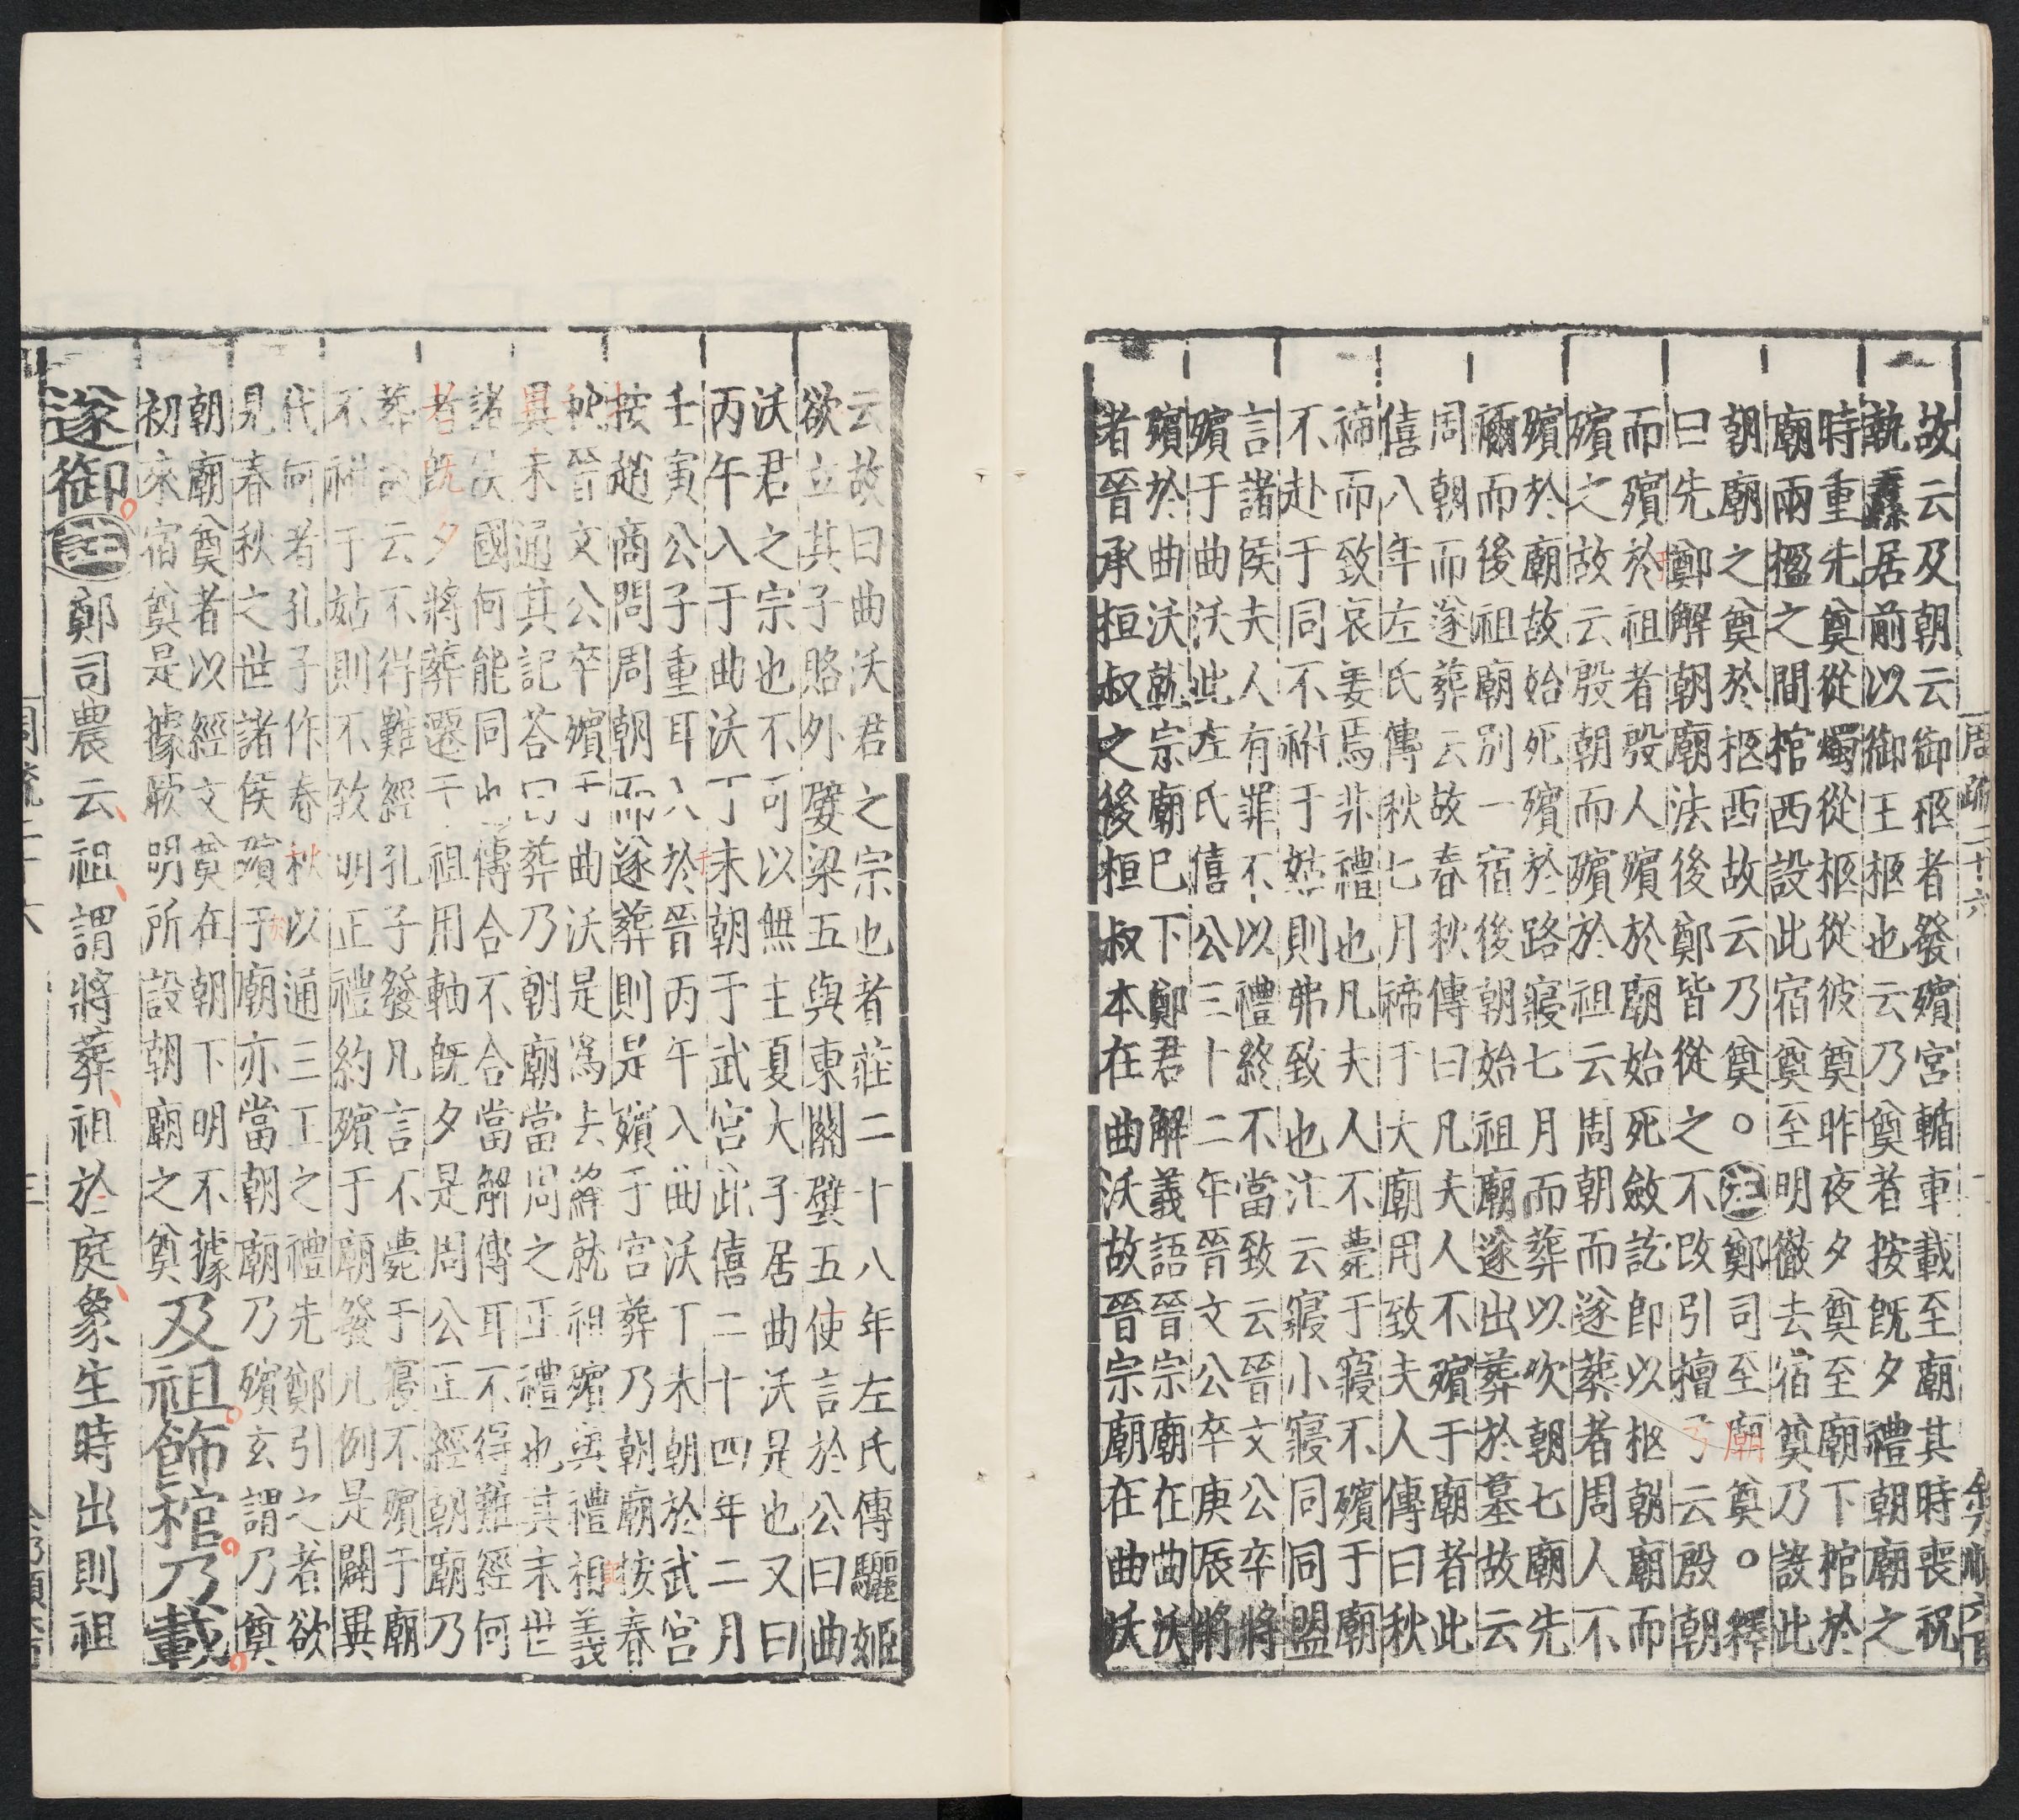 周疏二十六
故云及朝云御柩者發殯宮輴車載至廟其時喪祝
執纛居前以御王柩也云乃奠者按既夕禮朝廟之
時重先奠從燭從柩從彼奠昨夜夕奠至廟下棺於
廟兩楹之間棺西設此宿奠至明徹去宿奠乃設此
朝廟之奠於柩西故云乃奠。注鄭司至廟奠。釋
曰先鄭解朝廟法後鄭皆從之不改引擅弓云殷朝
而殯於祖者殷人殯於廟始死斂訖卽以柩朝廟而
殯之故云殷朝而殯於祖云周朝而遂葬者周人不
殯於廟故始死殯於路寢七月而葬以次朝七廟先
禰而後祖廟別一宿後朝始祖廟遂出葬於墓故云
周朝而遂葬云故春秋傳曰凡夫人不殯于廟者此
僖八年左氏傳秋七月禘于大廟用致夫人傳曰秋
禘而致哀姜焉非禮也凡夫人不薨于寢不殯于廟
不赴于同不祔于姑則弗致也注云寢小寢同同盟
言諸侯夫人有罪不以禮終不當致云晉文公卒將
殯于曲沃此左氏僖公三十二年晉文公卒庚辰將
殯於曲沃就宗廟已下鄭君解義語晉宗廟在曲沃
者晉承桓叔之後桓叔本在曲沃故晉宗廟在曲沃
云故曰曲沃君之宗也者莊二十八年左氏傳驪姬
欲立其子賂外嬖梁五與東關嬖五使言於公曰曲
沃君之宗也不可以無主夏大子居曲沃是也又曰
丙午入于曲沃丁未朝于武宮此僖二十四年二月
壬寅公子重耳入於晉丙午入曲沃丁未朝於武宮
按趙商問周朝而遂葬則是殯于宮葬乃朝廟按春
秋晉文公卒殯于曲沃是爲去絳就祖殯與禮相義
異未通其記荅曰葬乃朝廟當周之正禮也其末世
諸侯國何能同也傳合不合當解傳耳不得難經何
者既夕將葬遷于祖用軸既夕是周公正經朝廟乃
葬故云不得難經孔子發凡言不薨于寢不殯于廟
不祔于姑則不致明正禮約殯于廟發凡例是關異
代何者孔子作春秋以通三王之禮先鄭引之者欲
見春秋之世諸侯殯于廟亦當朝廟乃殯玄謂乃奠
朝廟奠者以經文奠在朝下明不據
初來宿奠是據厥明所設朝廟之奠及祖飾棺乃載
遂御注鄭司農云祖謂將葬祖於庭象生時出則祖